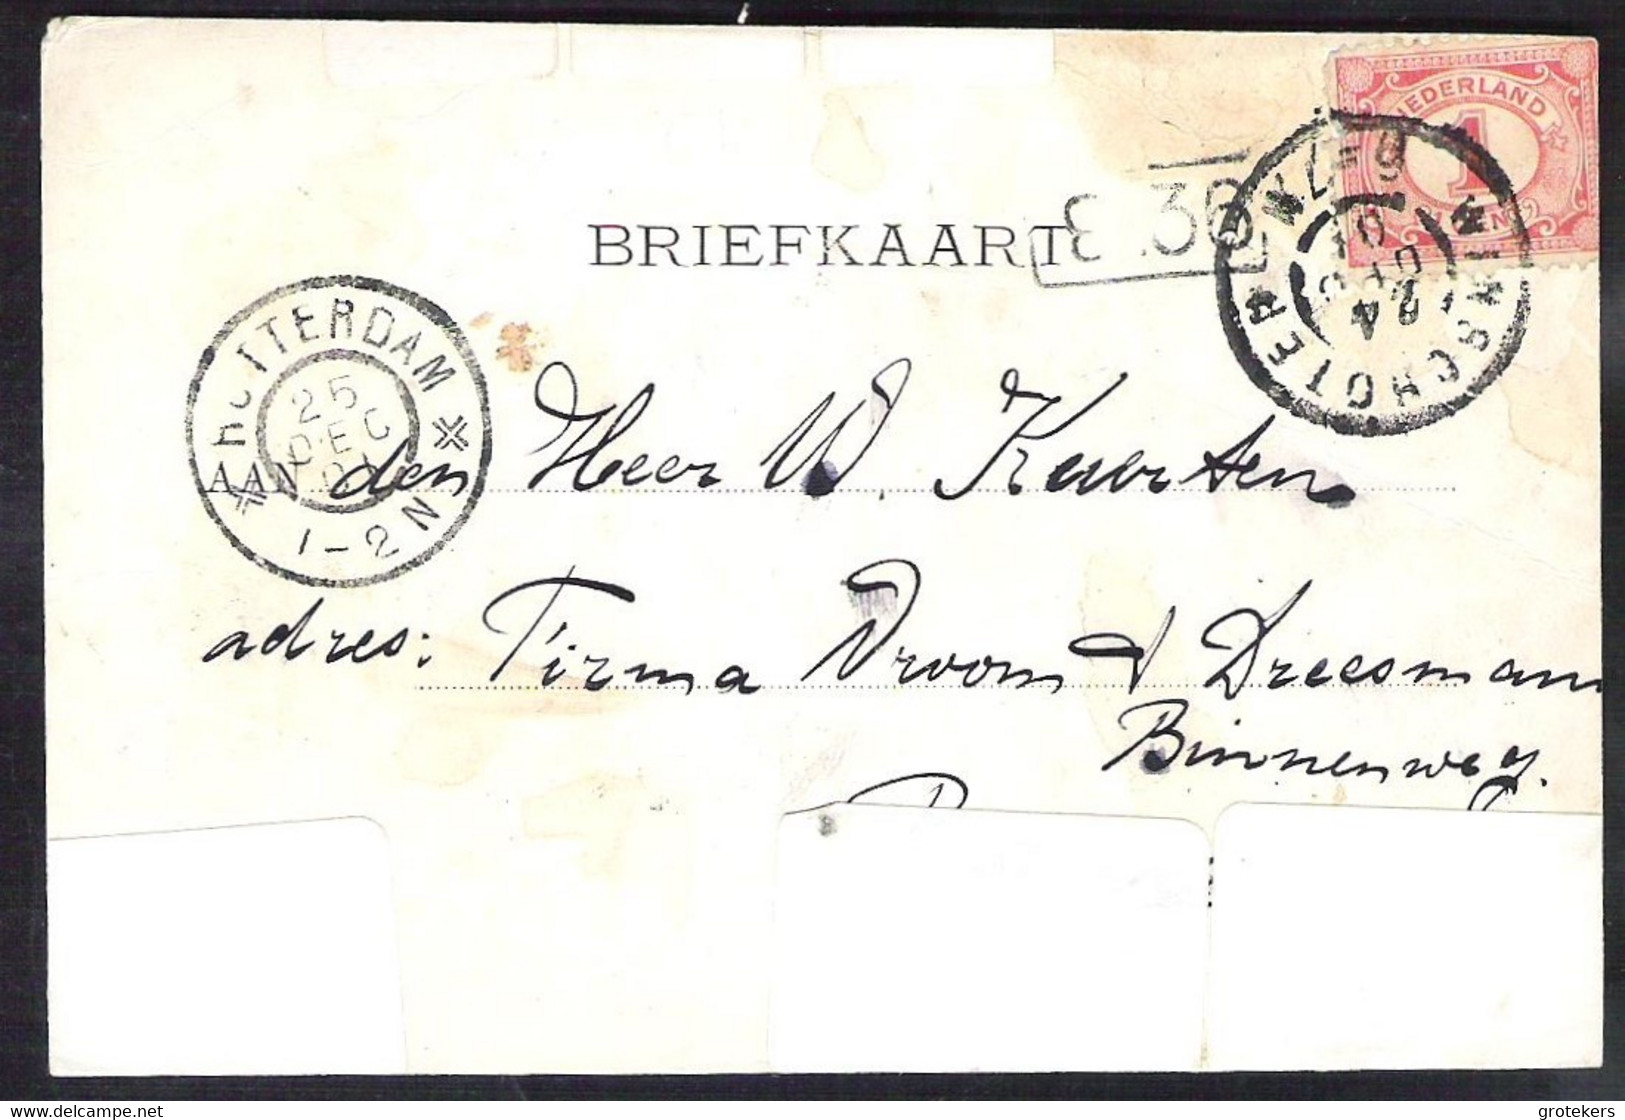 NEDERLAND
1
CENT
WINSCHOTEN
24 DEC 01
6-7N
BRIEFKAART
ROTTERDAM
25
DEC
01
1-2N
AAN den Heer W. Kuersten
adres: Firma Vroom & Dreesmann
Binnenweg.
delcampe.net
grotekers